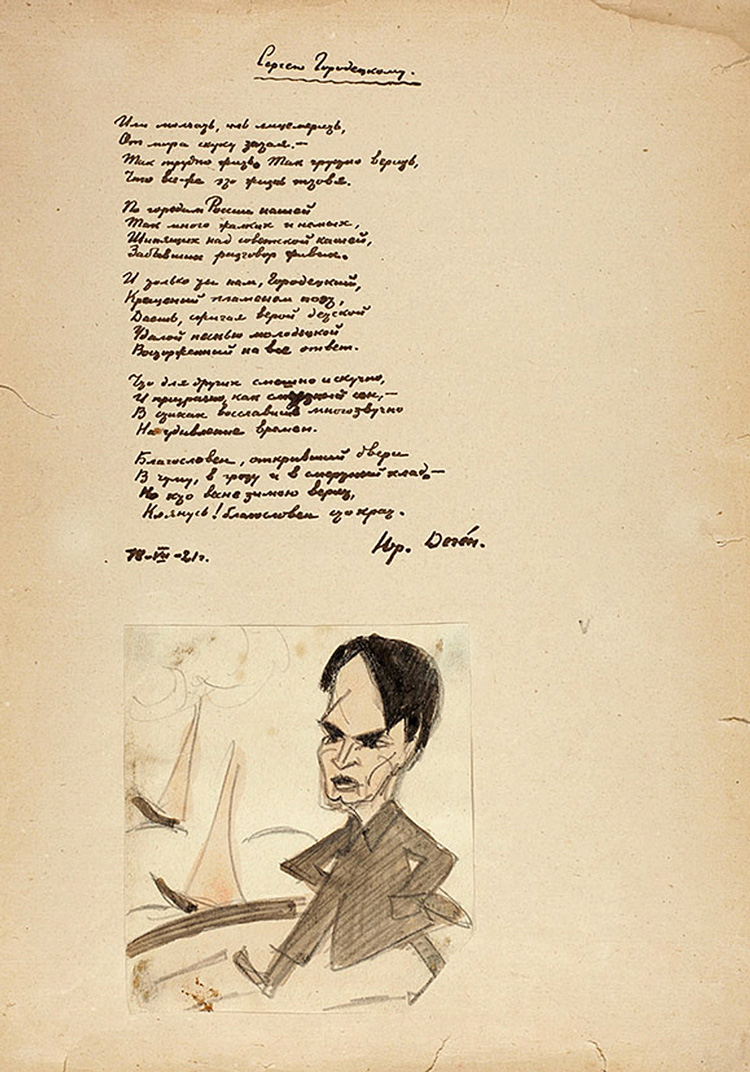 Сергею Городецкому.
Или молчать, иль лицемерить,
От мира скуку затая.—
Так трудно жить. Так трудно верить,
Что все-же это жизнь твоя.
По городам России нашей
Так много жалких и немых,
Шипящих над советской кашей,
Забывших разговор живых.
И только ты нам, Городецкий,
Крещеный пламенем поэт,
Даешь, сжигая верой детской
Удалой песнью молодецкой
Восторженный на все ответ.
Что для других смешно и скучно,
И призрачно, как смертный сон,—
В стихах восславишь многозвучно
На удивление времен.
Благословен, открывший двери
В чуму, в грозу и в смертный хлад,—
Но кто весне зимою верит,
Клянусь! благословен стократ.
18-VII-21г.
Юр. Деген.